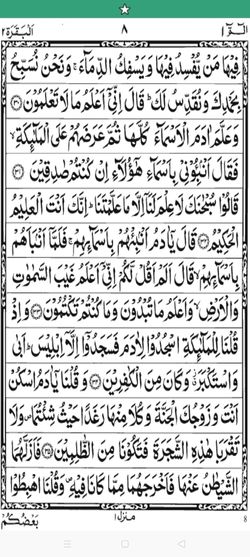 الٓمّٓ ١ ٨ البقرة ٢
فِيْهَا مَنْ يُّفْسِدُ فِيْهَا وَيَسْفِكُ الدِّمَآءَ ۚ وَنَحْنُ نُسَبِّحُ
بِحَمْدِكَ وَنُقَدِّسُ لَكَ ؕ قَالَ اِنِّيْٓ اَعْلَمُ مَا لَا تَعْلَمُوْنَ ﴿۳۰﴾
وَعَلَّمَ اٰدَمَ الْاَسْمَآءَ كُلَّهَا ثُمَّ عَرَضَهُمْ عَلَى الْمَلٰٓئِكَةِ ۙ
فَقَالَ اَنْۢبِـُٔوْنِيْ بِاَسْمَآءِ هٰٓؤُلَآءِ اِنْ كُنْتُمْ صٰدِقِيْنَ ﴿۳۱﴾
قَالُوْا سُبْحٰنَكَ لَا عِلْمَ لَنَآ اِلَّا مَا عَلَّمْتَنَا ؕ اِنَّكَ اَنْتَ الْعَلِيْمُ
الْحَكِيْمُ ﴿۳۲﴾ قَالَ يٰٓاٰدَمُ اَنْۢبِئْهُمْ بِاَسْمَآئِهِمْ ۚ فَلَمَّآ اَنْۢبَاَهُمْ
بِاَسْمَآئِهِمْ ۙ قَالَ اَلَمْ اَقُلْ لَّكُمْ اِنِّيْٓ اَعْلَمُ غَيْبَ السَّمٰوٰتِ
وَالْاَرْضِ ۙ وَاَعْلَمُ مَا تُبْدُوْنَ وَمَا كُنْتُمْ تَكْتُمُوْنَ ﴿۳۳﴾ وَاِذْ
قُلْنَا لِلْمَلٰٓئِكَةِ اسْجُدُوْا لِاٰدَمَ فَسَجَدُوْٓا اِلَّآ اِبْلِيْسَ ؕ اَبٰى
وَاسْتَكْبَرَ ۗ وَكَانَ مِنَ الْكٰفِرِيْنَ ﴿۳۴﴾ وَقُلْنَا يٰٓاٰدَمُ اسْكُنْ
اَنْتَ وَزَوْجُكَ الْجَنَّةَ وَكُلَا مِنْهَا رَغَدًا حَيْثُ شِئْتُمَا ۪ وَلَا
تَقْرَبَا هٰذِهِ الشَّجَرَةَ فَتَكُوْنَا مِنَ الظّٰلِمِيْنَ ﴿۳۵﴾ فَاَزَلَّهُمَا
الشَّيْطٰنُ عَنْهَا فَاَخْرَجَهُمَا مِمَّا كَانَا فِيْهِ ۪ وَقُلْنَا اهْبِطُوْا
8 منزل ١ بَعْضُكُمْ